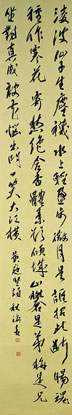 凌波仙子生塵襪水上輕盈步微月是誰招此斷腸魂
種作寒花寄愁絕含香體素欲傾城山礬是弟梅是兄
坐對真成被花惱出門一笑大江橫